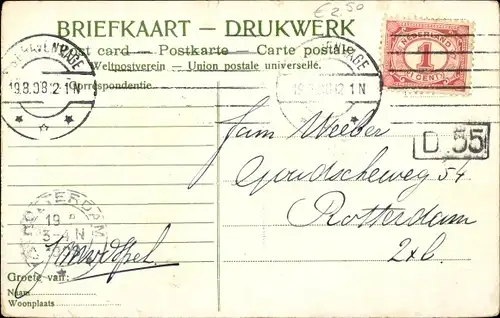 € 2.50
BRIEFKAART — DRUKWERK
Post card — Postkarte — Carte postale
Weltpostverein — Union postale universelle.
Correspondentie.
NEDERLAND
1
CENT
'S GRAVENHAGE
19.8.08 12-1N
'S GRAVENHAGE
19.8.08 12-1N
D.55
Fam Weeber
Goudscheweg 54
Rotterdam
2xb.
ROTTERDAM
19 8
3-4 N
Groete van:
Naam
Woonplaats